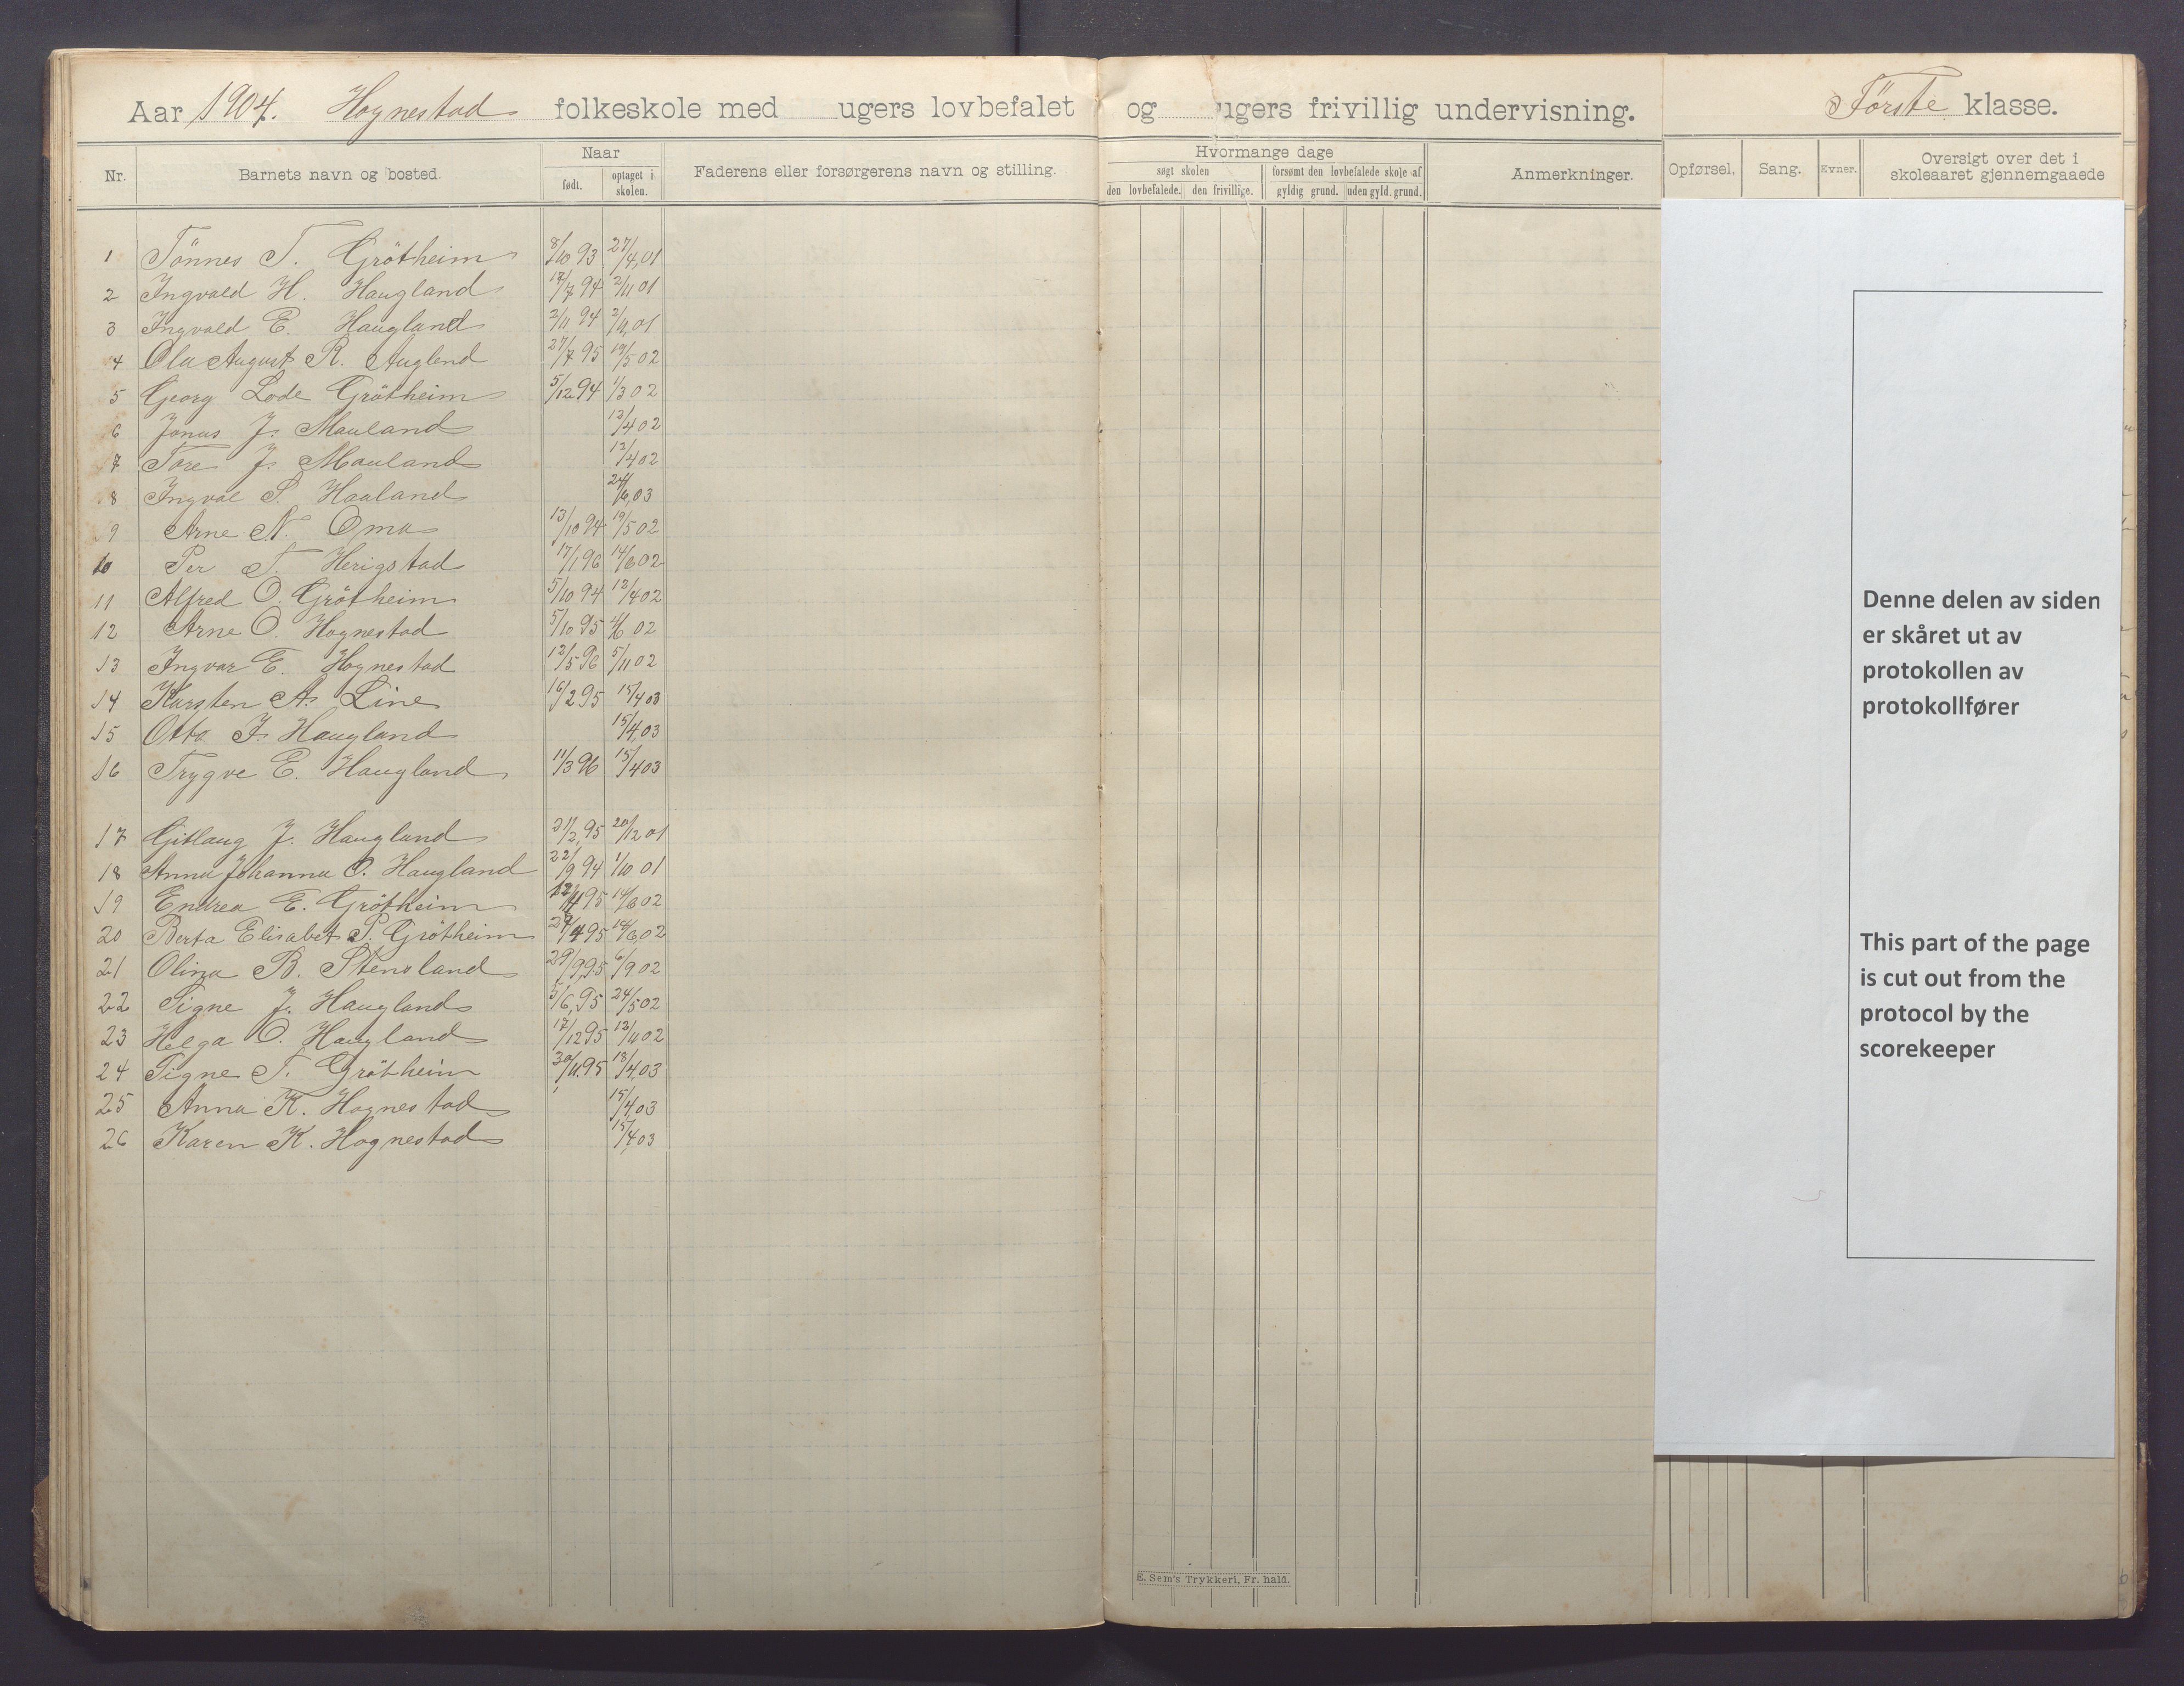 Aar 1904. Hognestad folkeskole med ugers lovbefalet og ugers frivillig undervisning. Første klasse.
Nr. Barnets navn og bosted. Naar Faderens eller forsørgerens navn og stilling. Hvormange dage Anmerkninger. Opførsel. Sang. Evner. Oversigt over det i skoleaaret gjennemgaaede
født. optaget i skolen. søgt skolen forsømt den lovbefalede skole af
den lovbefalede. den frivillige. gyldig grund. uden gyld. grund.
1 Tönnes T. Grötheim 8/10 93 27/4,01
2 Ingvald H. Haugland 17/7 94 2/11 01
3 Ingvald E. Haugland 2/11 94 2/11,01
4 Ola August R. Auglend 27/7 95 19/5 02
5 Georg Lode Grötheim 5/12 94 1/3 02
6 Jonas J. Mauland 12/4 02
7 Tore J. Mauland 12/4 02
8 Ingval S. Haaland 24/6,03
9 Arne N. Oma 13/10 94 19/5 02
10 Per T. Herigstad 17/1 96 14/6 02
11 Alfred O. Grötheim 5/10 94 12/4 02
12 Arne O. Hognestad 5/10 95 4/6 02
13 Ingvar E. Hognestad 12/5 96 5/11 02
14 Karsten A. Line 16/2 95 15/4 03
15 Otto J. Haugland 15/4,03
16 Trygve E. Haugland 11/3 96 15/4 03
17 Gitlaug J. Haugland 95 20/12 01
18 Anna Johanna O. Haugland 22/9 94 1/10 01
19 Endrea E. Grötheim 95 14/6 02
20 Berta Elisabet S. Grötheim 4 95 14/6,02
21 Olina B. Stensland 29/9,95 6/9 02
22 Signe J. Haugland 5/6,95 24/5 02
23 Helga O. Haugland 17/12 95 12/11 02
24 Signe T. Grötheim 30/11.95 18/4,03
25 Anna K. Hognestad 15/4,03
26 Karen K. Hognestad 15/4,03
E. Sem's Trykkeri, Fr. hald.
Denne delen av siden
er skåret ut av
protokollen av
protokollfører
This part of the page
is cut out from the
protocol by the
scorekeeper